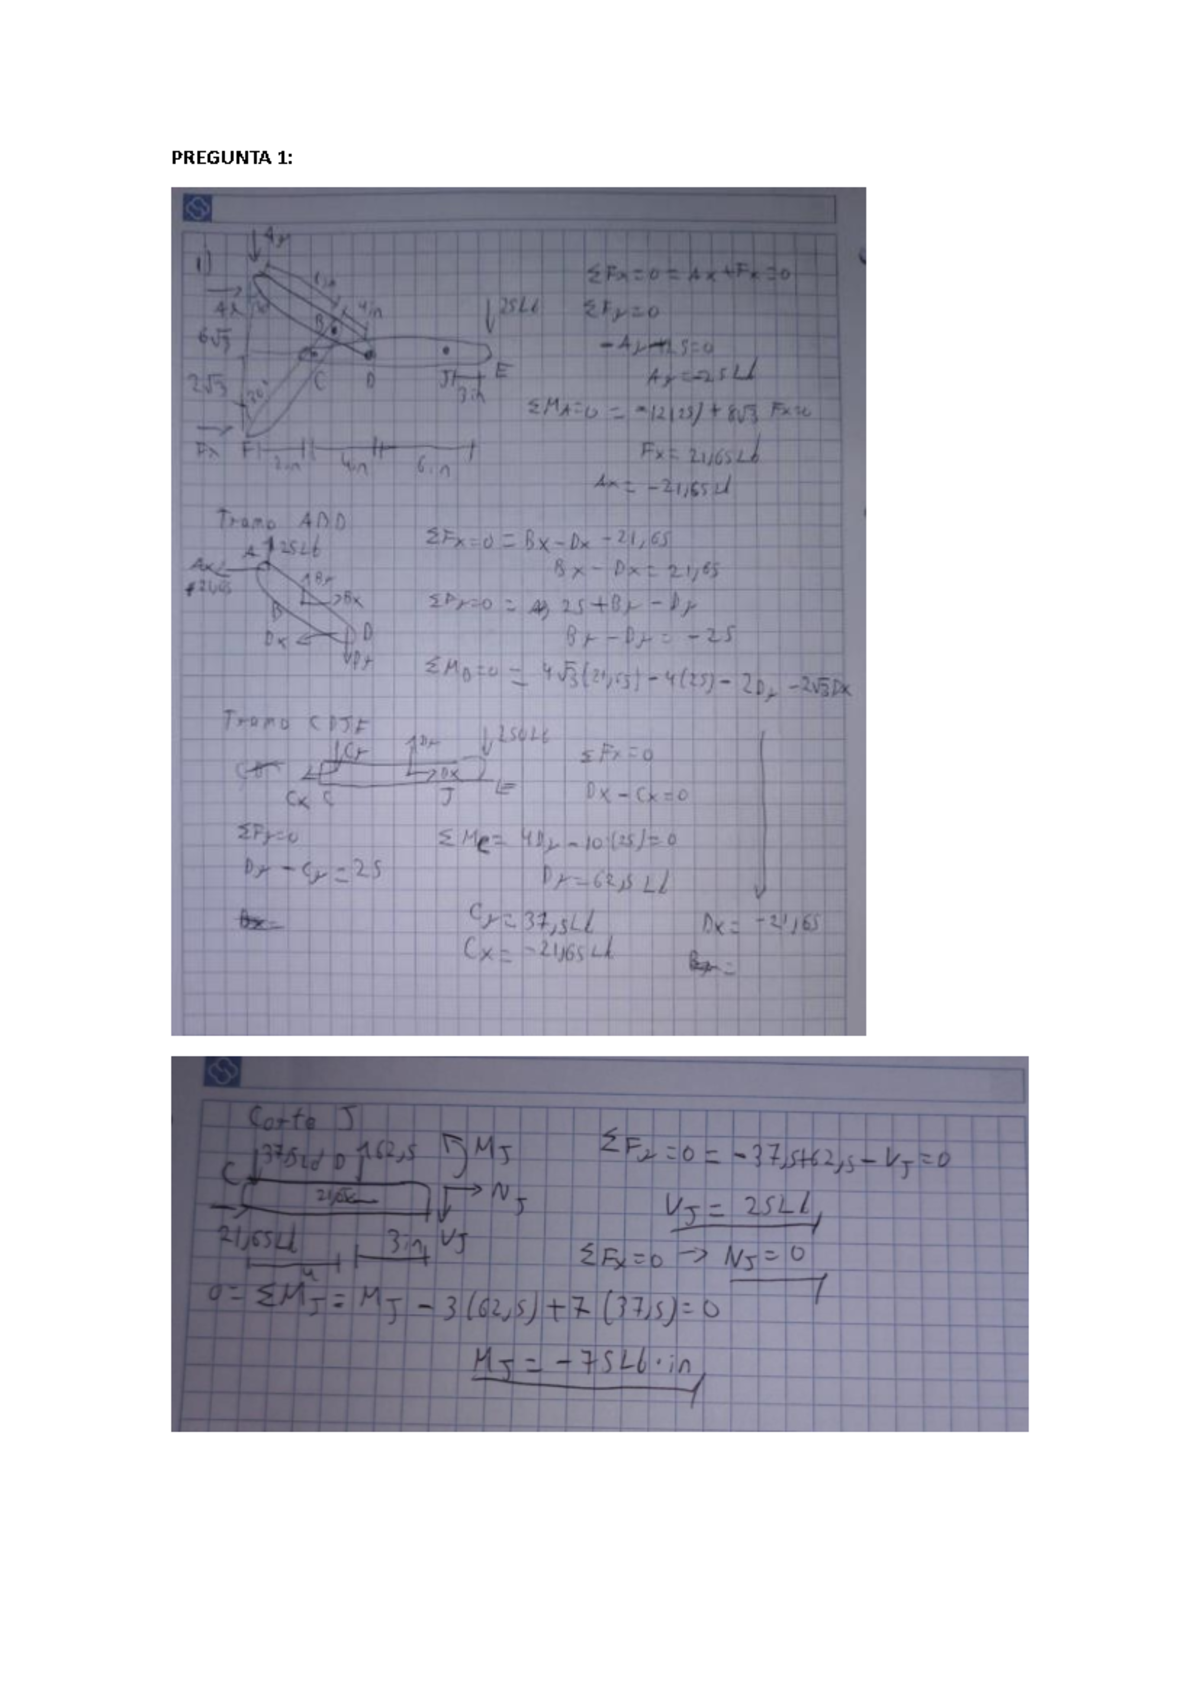 PREGUNTA 1:
1)
Ay
Ax
30°
4in
B
25Lb
6√3
2√3
30°
C
D
J
E
3in
Fx
F
2in
4in
6in
ΣFx=0 = Ax+Fx=0
ΣFy=0
-Ay-25=0
Ay=-25Lb
ΣMA=0 = -12(25) + 8√3 Fx=0
Fx= 21,65Lb
Ax= -21,65Lb
Tramo ABD
A 25Lb
Ax
21,65
By
Bx
B
Dx
D
Dy
ΣFx=0 = Bx-Dx-21,65
Bx-Dx=21,65
ΣFy=0 = 25+By-Dy
By-Dy = -25
ΣMB=0 = 4√3(21,65)-4(25)-2Dy-2√3Dx
Tramo CDJE
Cy
Dy
Dx
Cx C
J
E
ΣFx=0
Dx-Cx=0
ΣFy=0
Dy-Cy=25
ΣMC= 4Dy-10(25)=0
Dy=62,5Lb
Cy=37,5Lb
Cx=-21,65Lb
Dx= -21,65
Corte J
37,5Lb D 62,5
C
MJ
NJ
VJ
21,65Lb
4
3in
ΣFy=0=-37,5+62,5-VJ=0
VJ= 25Lb
ΣFx=0 → NJ=0
0=ΣMJ=MJ-3(62,5)+7(37,5)=0
MJ=-75Lb·in